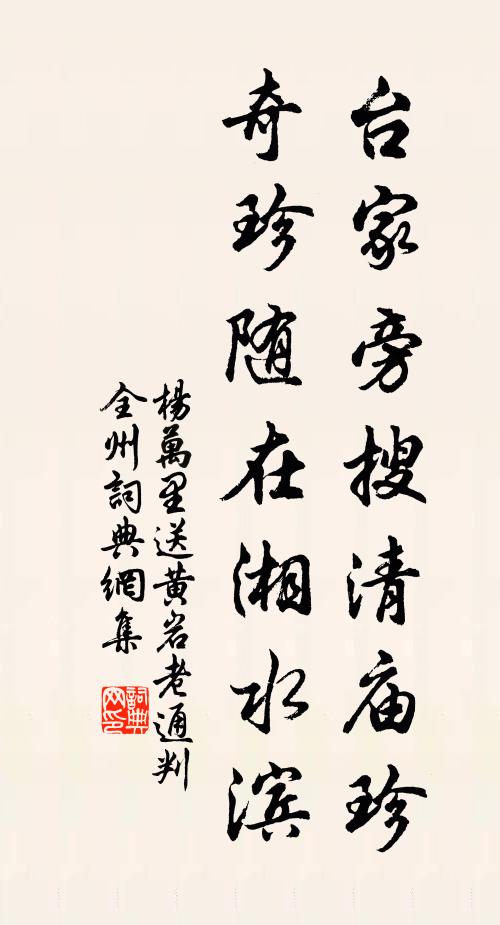 台家旁搜清庙珍
奇珍随在湘水滨
楊萬里送黄岩老通判
全州詞典網集
詞典
网印